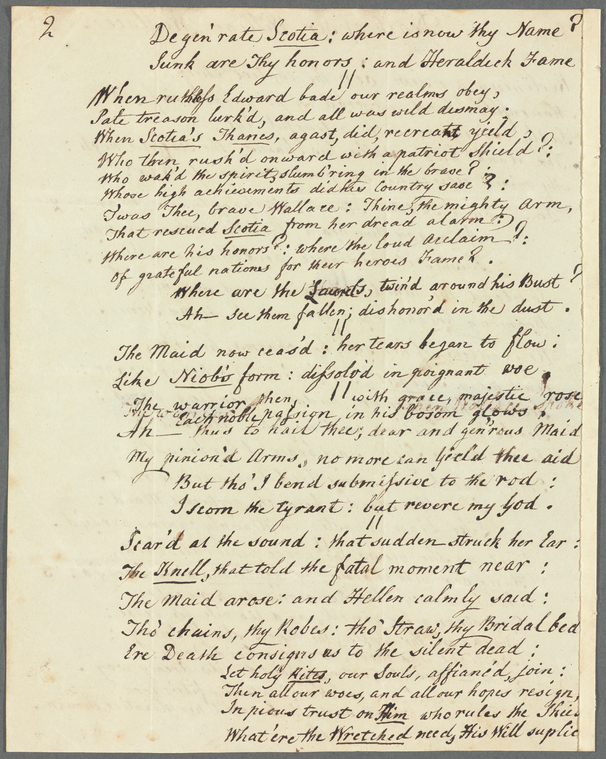 2
Degen'rate Scotia: where is now thy Name?
Sunk are Thy honors: and Heraldick Fame
When ruthless Edward bade our realms obey,
Pale treason lurk'd, and all was wild dismay.
When Scotia's Thanes, agast, did, recreant yeild,
Who then rush'd onward with a patriot Shield?:
Who wak'd the spirit, slumb'ring in the brave?:
Whose high achievements did his Country save?:
Twas Thee, brave Wallace: Thine, the mighty Arm,
That rescued Scotia from her dread alarm?
Where are his honors?: where the loud Acclaim?:
Of grateful nations for their heroes Fame?.
Where are the Laurels, twin'd around his Bust?
Ah— see them fallen; dishonor'd in the dust.
The Maid now ceas'd: her tears began to flow:
Like Niob's form: dissolv'd in poignant woe.
The warrior then, with grace, majestic rose
Each noble passion, in his bosom glows.
Ah— thus to hail thee; dear and gen'rous Maid
My pinion'd Arms, no more can yeeld thee aid
But tho' I bend submissive to the rod:
I scorn the tyrant: but revere my God.
Scar'd at the sound: that sudden struck her Ear:
The Knell, that told the fatal moment near:
The Maid arose: and Hellen calmly said:
Tho' chains, thy Robes: tho' Straw, thy Bridal bed
Ere Death consigns us to the silent dead:
Let holy Rites, our Souls, affianc'd, join:
Then all our woes, and all our hopes resign,
In pious trust on Him who rules the Skies
What'ere the Wretched need, His Will suplie